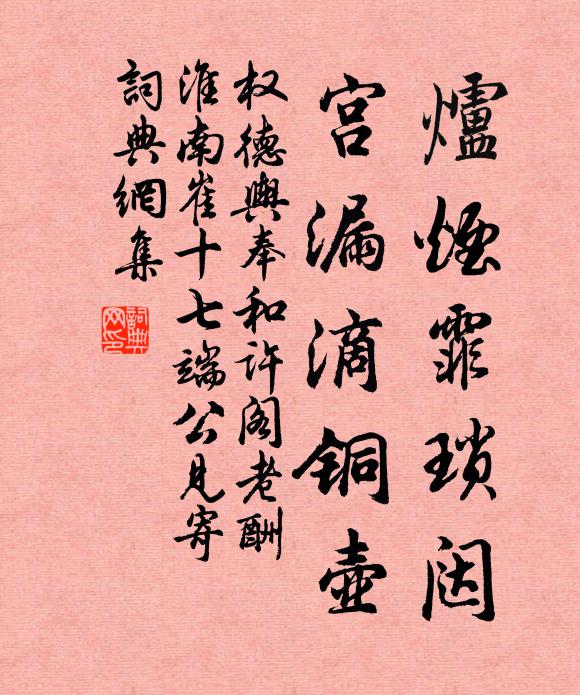 爐煙霏瑣闼
宫漏滴铜壺
权德輿奉和许阁老酬
淮南崔十七端公見寄
詞典網集
詞典网印